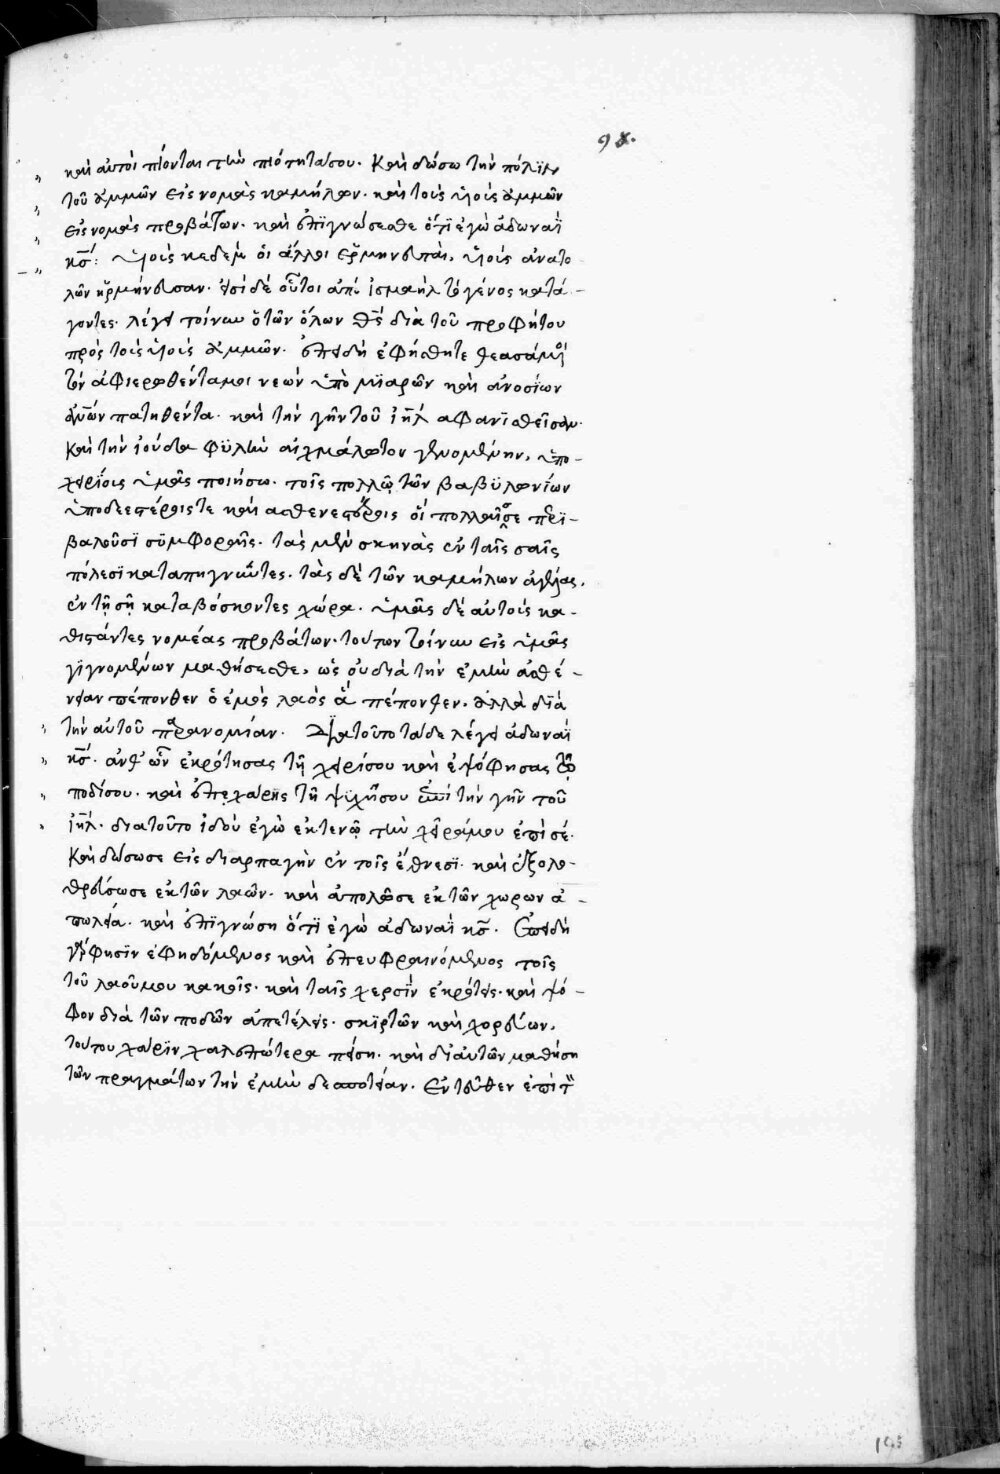 98.
καὶ αὐτοὶ πίονται τὴν πιότητά σου. Καὶ δώσω τὴν πόλϊν
τοῦ ἀμμῶν εἰς νομὰς καμήλων. καὶ τοὺς υἱοὺς ἀμμῶν
εἰς νομὰς προβάτων. καὶ ἐπϊγνώσεσθε ὅτϊ ἐγὼ ἀδωναῒ
κ̅ς̅: υἱοὺς κεδὲμ οἱ ἄλλοι ἑρμηνευταὶ, υἱοὺς ἀνατο
λῶν ἡρμήνευσαν. εἰσὶ δὲ οὗτοι ἀπὸ ἰσμαὴλ τὸ γένος κατά-
γοντες. λέγει τοίνυν ὁ τῶν ὅλων θ̅ς̅ διὰ τοῦ προφήτου
πρὸς τοὺς υἱοὺς ἀμμῶν. ἐπειδὴ ἐφήσθητε θεασάμενοι
τὸν ἀφιερωθέντα μοι νεὼν ὑπὸ μϊαρῶν καὶ ἀνοσίων
πατηθέντα. καὶ τὴν γῆν τοῦ ἰ̅η̅λ̅ ἀφανϊσθεῖσαν.
Καὶ τὴν ἰούδα φϋλὴν αἰχμάλωτον γενομένην, ὑπο-
χειρίους ὑμᾶς ποιήσω. τοῖς πολλῷ τῶν βαβϋλωνίων
ὑποδεεστέροις τε καὶ ἀσθενεστέροις οἳ πολλαῖς σε περϊ-
βαλοῦσϊ σϋμφοραῖς. τὰς μὲν σκηνὰς ἐν ταῖς σαῖς
πόλεσϊ καταπηγνύντες. τὰς δὲ τῶν καμήλων ἀγέλας,
ἐν τῇ σῇ καταβόσκοντες χώρα. ὑμᾶς δὲ αὐτοὺς κα-
θιστάντες νομέας προβάτων. τούτων τοίνυν εἰς ὑμᾶς
γϊγνομένων μαθήσεσθε, ὡς οὐ διὰ τὴν ἐμὴν ἀσθέ-
νειαν πέπονθεν ὁ ἐμὸς λαὸς ἃ πέπονθεν. ἀλλὰ δϊὰ
τὴν αὐτοῦ παρανομίαν. Διατοῦτο τάδε λέγει ἀδωναῒ
κ̅ς̅. ἀνθ' ὧν ἐκρότησας τῇ χειρίσου καὶ ἐψόφησας τῷ
ποδίσου. καὶ ἐπεχάρης τῇ ψϋχῇσου ἐπὶ τὴν γῆν τοῦ
ἰ̅η̅λ̅. διατοῦτο ἰδοὺ ἐγὼ ἐκτενῶ τὴν χεῖράμου ἐπὶ σέ.
Καὶ δώσωσε εἰς διαρπαγὴν ἐν τοῖς ἔθνεσϊ. καὶ ἐξολο-
θρεύσωσε ἐκ τῶν λαῶν. καὶ ἀπολῶσε ἐκ τῶν χωρων ἀ-
πωλεία. καὶ ἐπϊγνώση ὅτϊ ἐγὼ ἀδωναῒ κ̅ς̅. Ἐπειδὴ
γάρ φησϊν ἐφηδόμενος καὶ ἐπευφραινόμενος τοῖς
τοῦ λαοῦμου κακοῖς. καὶ ταῖς χερσὶν ἐκρότεις. καὶ ψό-
φον διὰ τῶν ποδῶν ἀπετέλεις. σκϊρτῶν καὶ χορεύων,
τούτου χάρϊν χαλεπώτερα πείση. καὶ δι' αὐτῶν μαθήση
τῶν πραγμάτων τὴν ἐμὴν δεσποτείαν. Ἐντεῦθεν ἐπὶ τ